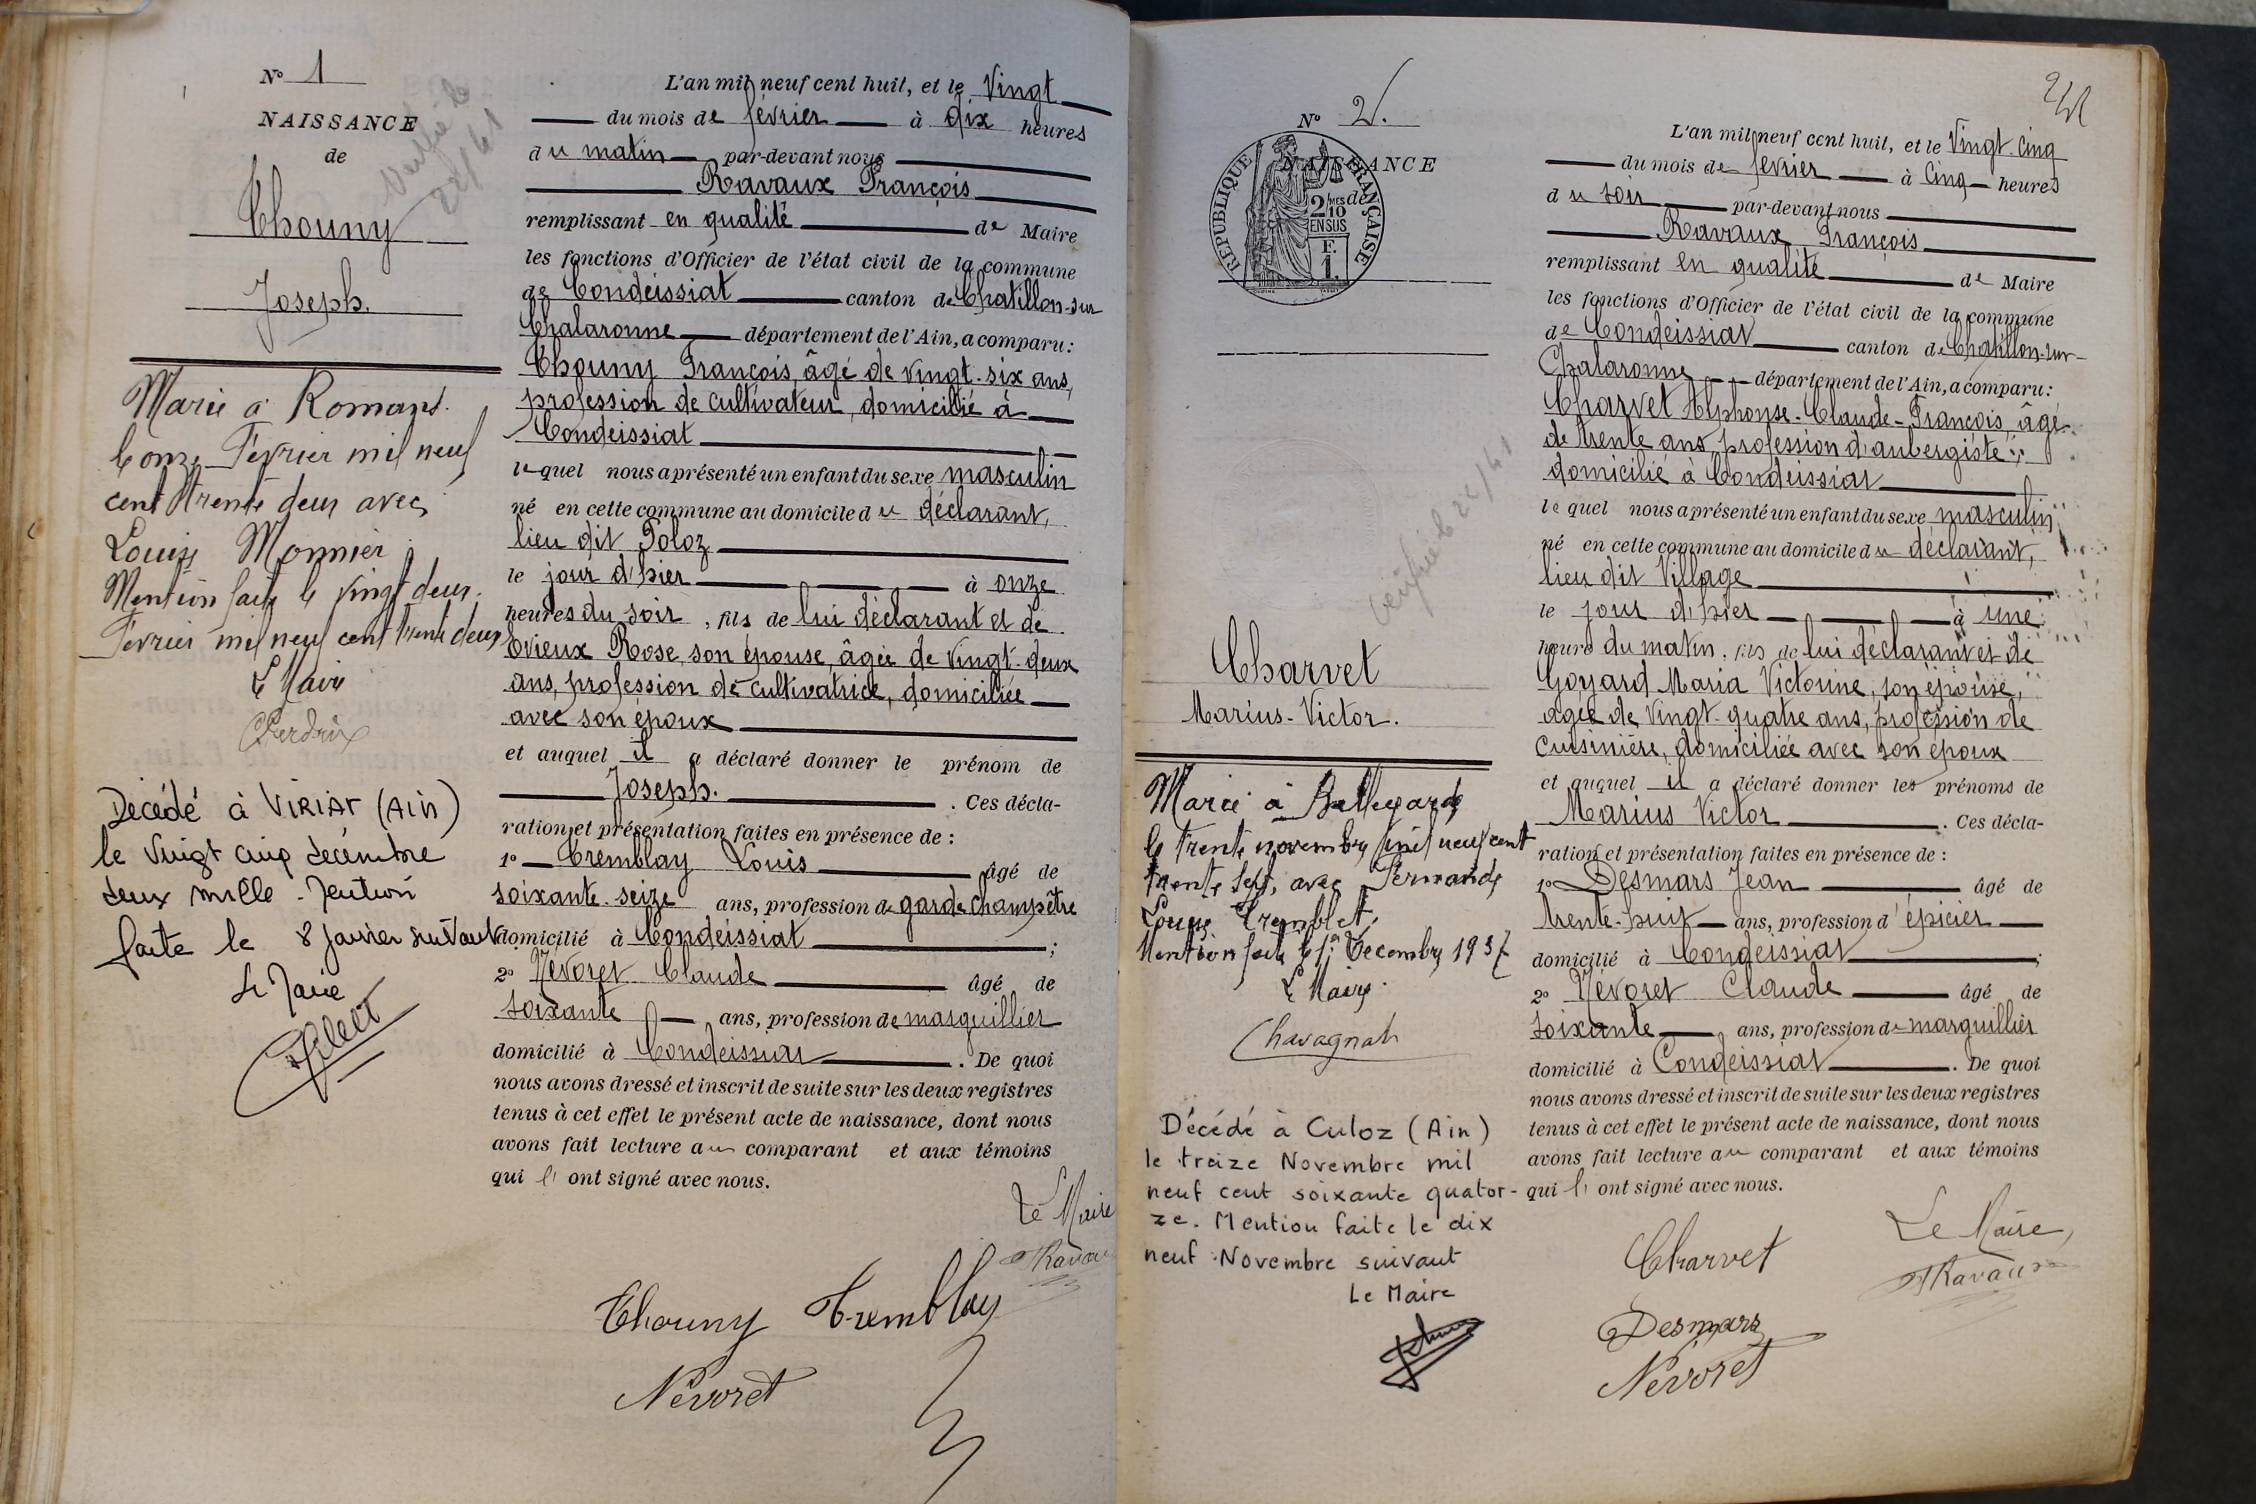 N° 1
NAISSANCE
de
Chouny
Joseph.
Marié à Romans.
le onze Février mil neuf
cent trente deux avec
Louise Monnier
Mention faite le vingt deux
Février mil neuf cent trente deux
Le Maire
Décédé à VIRIAT (Ain)
le vingt cinq décembre
deux mille. Mention
faite le 8 janvier suivant
Le Maire
L'an mil neuf cent huit, et le Vingt
du mois de février à dix heures
du matin par-devant nous
Ravaux François
remplissant en qualité de Maire
les fonctions d'Officier de l'état civil de la commune
de Condeissiat canton de Chatillon-sur
Chalaronne département de l'Ain, a comparu :
Chouny François, âgé de vingt-six ans,
profession de cultivateur, domicilié à
Condeissiat
lequel nous a présenté un enfant du sexe masculin
né en cette commune au domicile du déclarant,
lieu dit Poloz
le jour d'hier à onze
heures du soir, fils de lui déclarant et de
Evieux Rose, son épouse, âgée de vingt-deux
ans, profession de cultivatrice, domiciliée
avec son époux
et auquel il a déclaré donner le prénom de
Joseph. . Ces décla-
ration et présentation faites en présence de :
1° Tremblay Louis âgé de
soixante-seize ans, profession de garde champêtre
domicilié à Condeissiat ;
2° Névoret Claude âgé de
soixante ans, profession de marguillier
domicilié à Condeissiat . De quoi
nous avons dressé et inscrit de suite sur les deux registres
tenus à cet effet le présent acte de naissance, dont nous
avons fait lecture au comparant et aux témoins
qui l' ont signé avec nous.
Le Maire
Ravaux
Chouny Tremblay
Névoret
N° 2.
NAISSANCE
de
RÉPUBLIQUE FRANÇAISE
2/10 MES
EN SUS
F.
1.
Charvet
Marius-Victor.
Marié à Bellegarde
le trente novembre mil neuf cent
trente sept, avec Fernande
Louise Tremblet,
Mention faite le 1er Decembre 1937
Le Maire
Chavagnat
Décédé à Culoz (Ain)
le treize Novembre mil
neuf cent soixante quator-
ze. Mention faite le dix
neuf Novembre suivant
Le Maire
L'an mil neuf cent huit, et le Vingt-cinq
du mois de février à Cinq heures
du soir par-devant nous
Ravaux François
remplissant en qualité de Maire
les fonctions d'Officier de l'état civil de la commune
de Condeissiat canton de Chatillon-sur-
Chalaronne département de l'Ain, a comparu :
Charvet Alphonse-Claude-François, âgé
de trente ans, profession d'aubergiste
domicilié à Condeissiat
lequel nous a présenté un enfant du sexe masculin
né en cette commune au domicile du déclarant,
lieu dit Village
le jour d'hier à une
heure du matin, fils de lui déclarant et de
Goyard Maria Victorine, son épouse,
âgée de vingt-quatre ans, profession de
cuisinière, domiciliée avec son époux
et auquel il a déclaré donner les prénoms de
Marius Victor . Ces décla-
ration et présentation faites en présence de :
1° Desmars Jean âgé de
trente-huit ans, profession d'épicier
domicilié à Condeissiat ;
2° Névoret Claude âgé de
soixante ans, profession de marguillier
domicilié à Condeissiat . De quoi
nous avons dressé et inscrit de suite sur les deux registres
tenus à cet effet le présent acte de naissance, dont nous
avons fait lecture au comparant et aux témoins
qui l' ont signé avec nous.
Le Maire,
Charvet
Ravaux
Desmars
Névoret